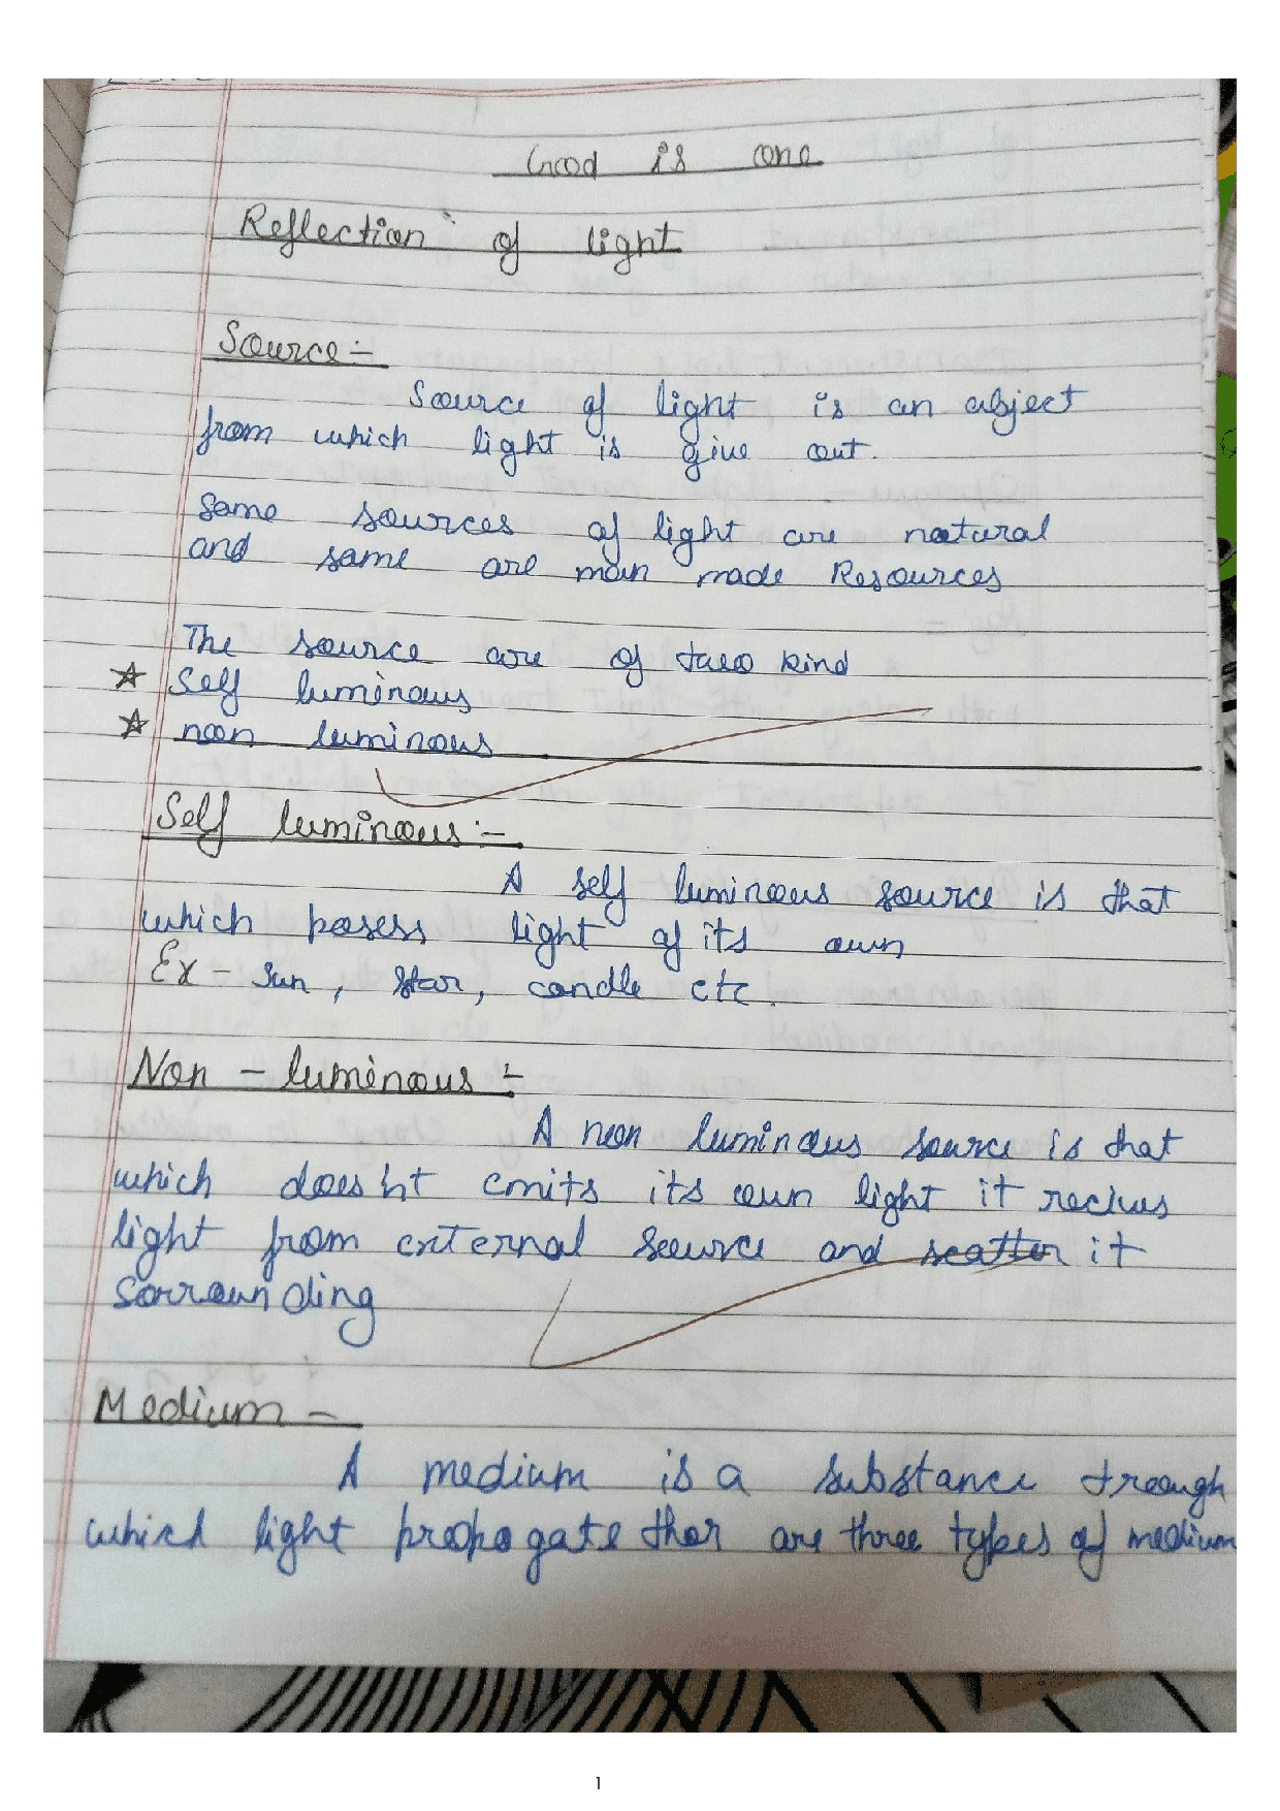 Good is one
Reflection of light
Source:-
Source of light is an object
from which light is give out.
Some sources of light are natural
and some are man made Resources
The source are of two kind
☆ Self luminous
☆ non luminous
Self luminous:-
A self luminous source is that
which posess light of its own
Ex - Sun, star, candle etc.
Non - luminous:-
A non luminous source is that
which does'nt emits its own light it recives
light from external source and scatter it
sorrounding
Medium -
A medium is a substance trough
which light propogate ther are three types of medium
1